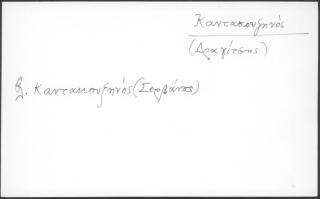 Καντακουζηνός
(Δραγίτσης)
βλ. Καντακουζηνός (Σερβάνος)